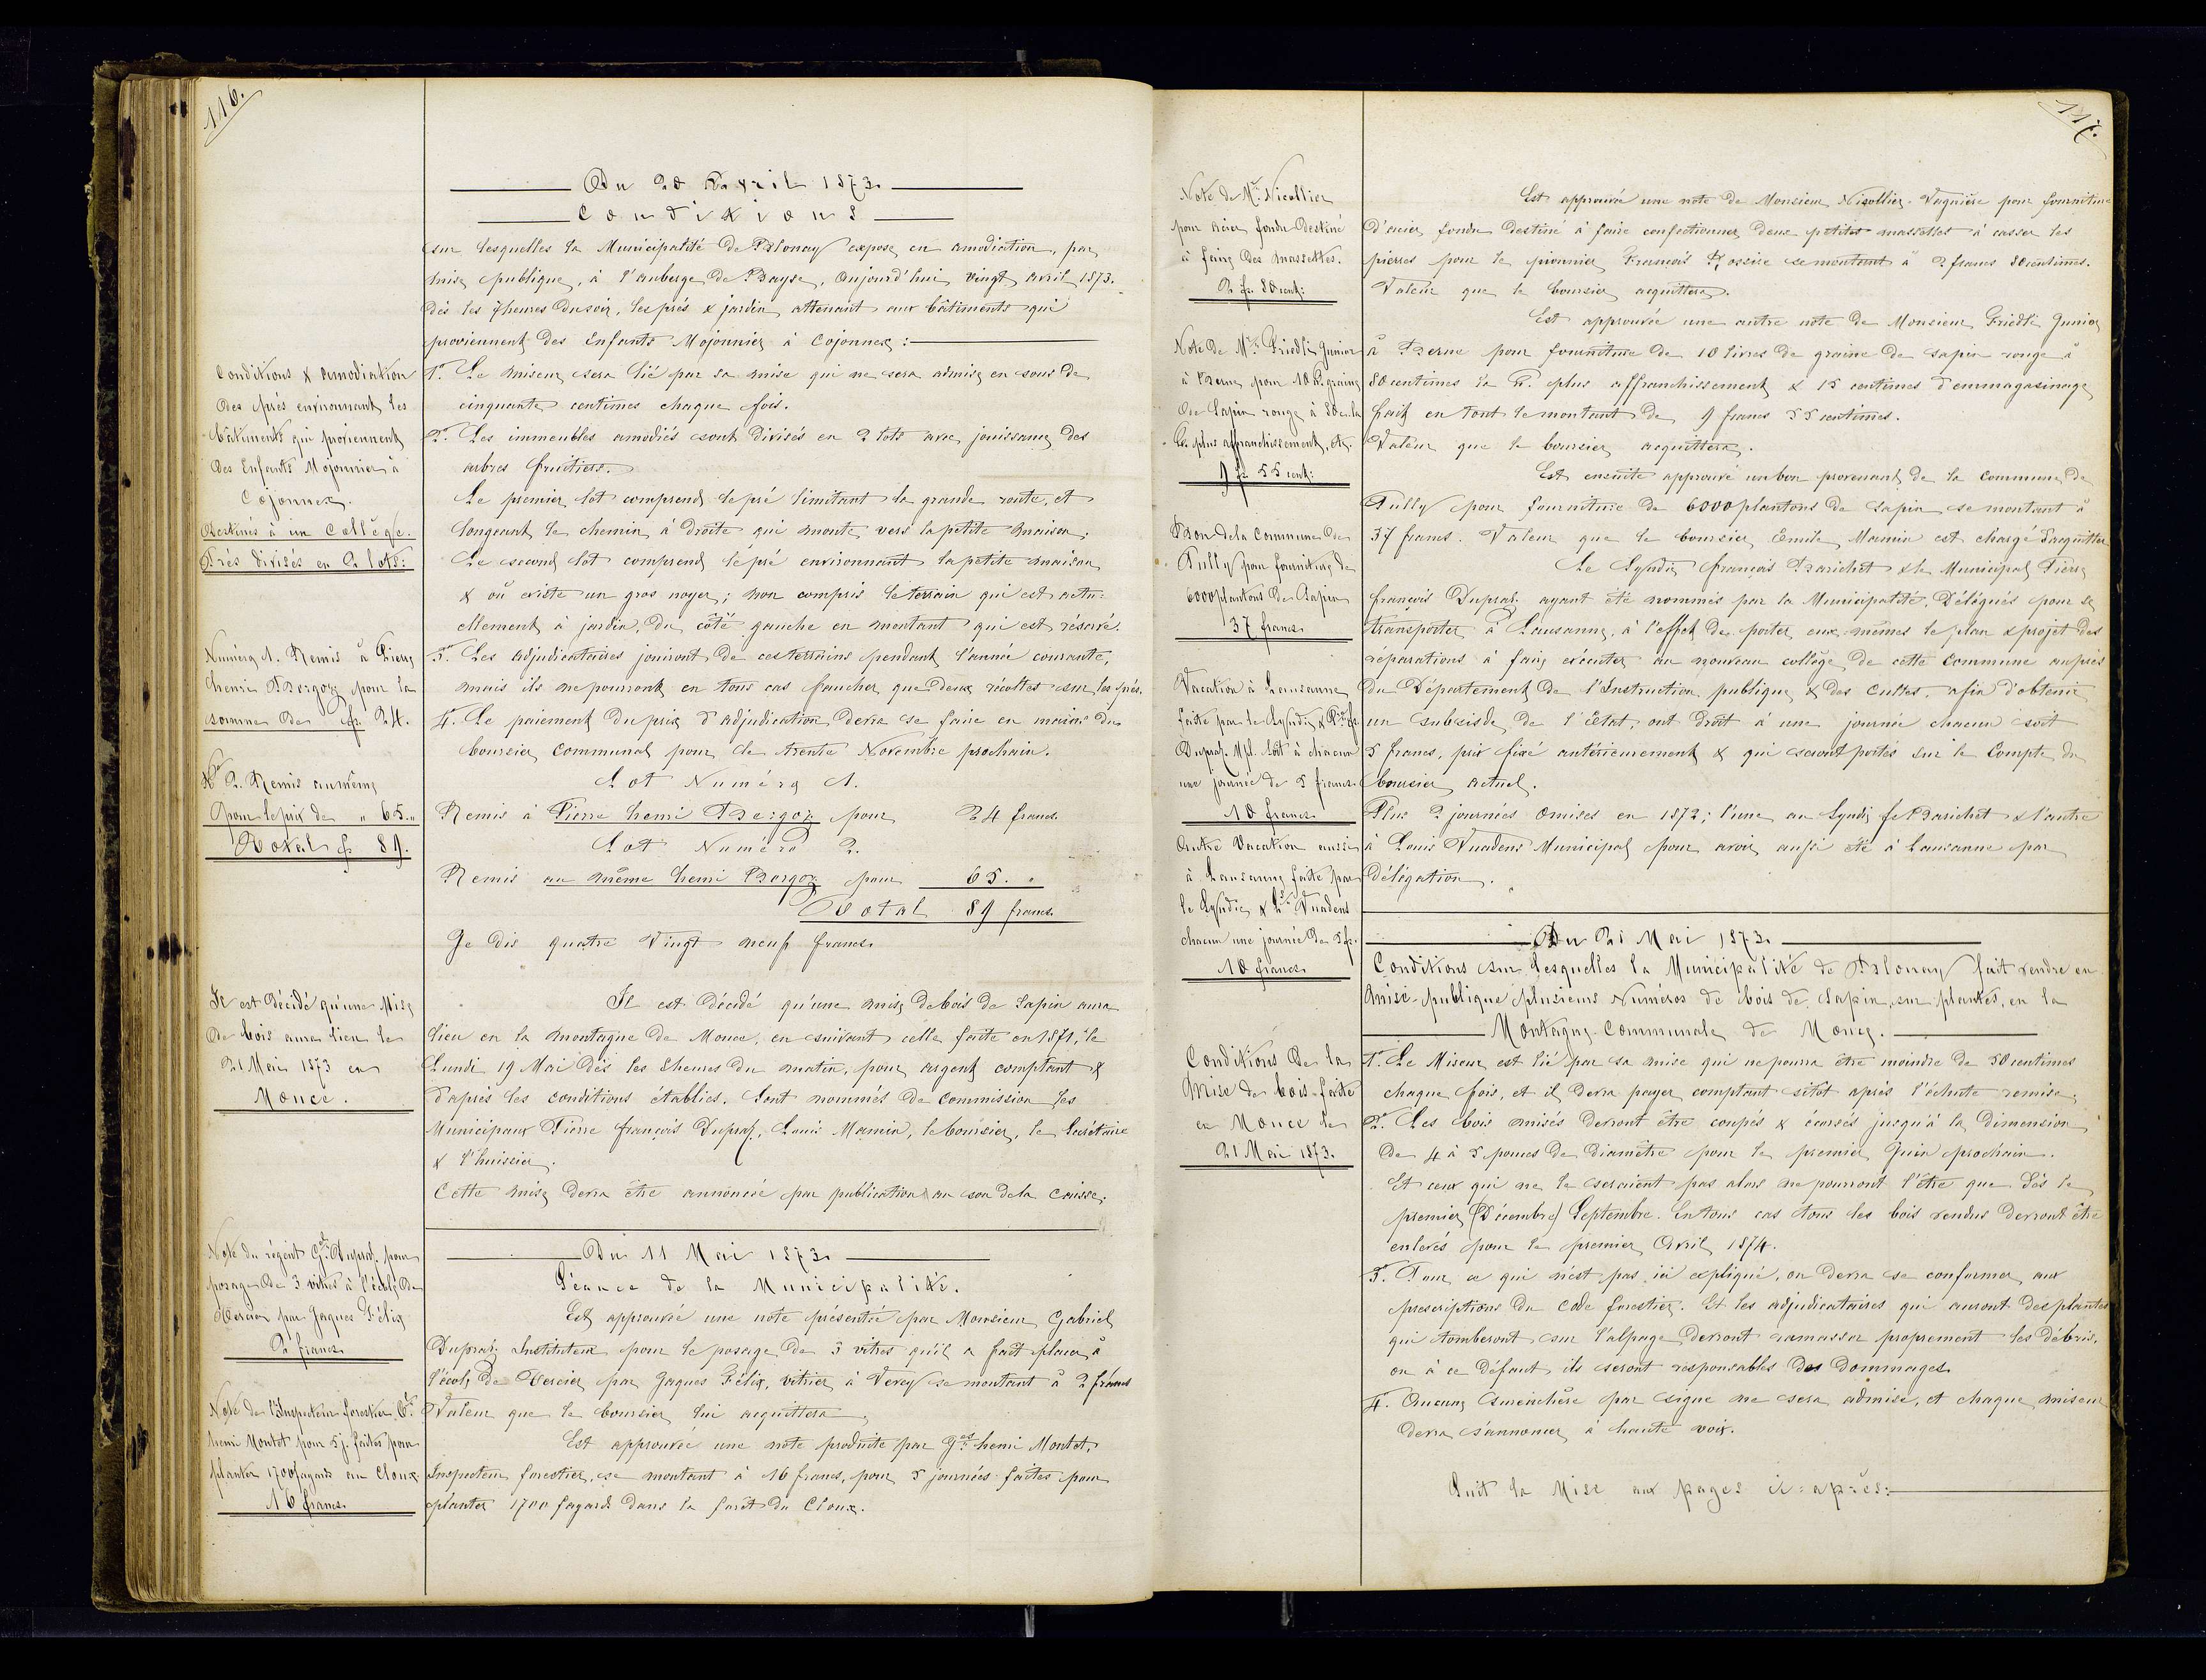 116.
Du 20 Avril 1873.
Conditions
sur lesquelles la Municipalité de Blonay expose en amodiation, par
mise publique, à l'auberge de Bayse, aujourd'hui vingt avril 1873.
dès les 7 heures du soir, les prés & jardin attenant aux bâtiments qui
proviennent des Enfants Mojonnier à Cojonnex :
1°. Le miseur sera lié par sa mise qui ne sera admise en sous de
cinquante centimes chaque fois.
2°. Les immeubles amodiés sont divisés en 2 lots avec jouissance des
arbres fruitiers.
Le premier lot comprend le pré limitant la grande route, et
longeant le chemin à droite qui monte vers la petite maison;
Le second lot comprend le pré environnant la petite maison
& où existe un gros noyer; non compris le terrain qui est actu-
ellement à jardin, du côté gauche en montant qui est réservé.
3°. Les adjudicataires jouiront de ces terrains pendant l'année courante,
mais ils ne pourront en tous cas faucher que deux récoltes sur les prés.
4°. Le paiement du prix d'adjudication devra se faire en mains du
boursier communal pour le trente Novembre prochain.
Lot Numéro 1.
Remis à Pierre henri Bergoz pour 24 francs
Lot Numéro 2.
Remis au même henri Bergoz pour 65. "
Total 89 francs
Je dis quatre vingt neuf francs
Il est décidé qu'une mise de bois de sapin aura
lieu en la montagne de Mouce, en suivant celle faite en 1871, le
Lundi 19 Mai dès les 8 heures du matin, pour argent comptant &
d'après les conditions établies. Sont nommés de Commission les
Municipaux Pierre françois Dupraz, Louis Mamin, le boursier, le Secrétaire
& l'huissier.
Cette mise devra être annoncée par publication au son de la caisse.
Du 11 Mai 1873.
Séance de la Municipalité.
Est approuvée une note présentée par Monsieur Gabriel
Dupraz Instituteur pour le posage de 3 vitres qu'il a fait placer à
l'école de Tercier par Jaques Félix, vitrier à Vevey se montant à 2 francs
Valeur que le boursier lui acquittera.
Est approuvée une note produite par Gges henri Montet,
Inspecteur forestier, se montant à 16 francs, pour 5 journées faites pour
planter 1700 fayards dans la forêt du Cloux.
Conditions & amodiation
des prés environnant les
bâtiments qui proviennent
des Enfants Mojonnier à
Cojonnex.
Destinés à un Collège.
Prés divisés en 2 lots:
Numéro 1. Remis à Pierre
henri Bergoz pour la
somme de fr. 24.
N° 2. Remis au même
pour le prix de " 65."
Total fr 89.
Il est décidé qu'une Mise
de bois aura lieu le
21 Mai 1873 en
Mouce.
Note du régent Gel Dupraz pour
posage de 3 vitres à l'école de
Tercier par Jaques Félix
2 francs
Note de l'Inspecteur forestier,
henri Montet pour 5 j. faites pour
planter 1700 fayards au Cloux.
16 francs
117.
Est approuvée une note de Monsieur Nicollier-Vagnière pour fourniture
d'acier fondu destiné à faire confectionner deux petites massettes à casser les
pierres pour le pionnier François se montant à 2 francs 80 centimes.
Valeur que le boursier acquittera.
Est approuvée une autre note de Monsieur Friedli Junior
à Berne pour fourniture de 10 livres de graine de sapin rouge à
80 centimes la ℔. plus affranchissement & 15 centimes d'emmagasinage
fait en tout le montant de 9 francs 55 centimes.
Valeur que le boursier acquittera.
Est ensuite approuvé un bon provenant de la Commune de
Pully pour fourniture de 6000 plantons de sapin se montant à
37 francs. Valeur que le boursier Emile Mamin est chargé d'acquitter
Le Syndic françois Barichet & le Municipal Pierre
françois Dupraz ayant été nommés par la Municipalité, Délégués pour se
transporter à Lausanne, à l'effet de porter eux mêmes le plan & projet des
réparations à faire exécuter au nouveau collège de cette Commune auprès
du Département de l'Instruction publique & des Cultes, afin d'obtenir
un subside de l'Etat, ont droit à une journée chacun soit
5 francs, prix fixé antérieurement & qui seront portés sur le Compte du
boursier actuel.
Plus 2 journées omises en 1872; l'une au Syndic fs Barichet & l'autre
à Louis Vuadens Municipal pour avoir aussi été à Lausanne par
délégation.
Du 21 Mai 1873.
Conditions sur lesquelles la Municipalité de Blonay fait vendre en
Mise publique plusieurs Numéros de bois de Sapin, sur plantes, en la
Montagne Communale de Mouce.
1°. Le Miseur est lié par sa mise qui ne pourra être moindre de 50 centimes
chaque fois, et il devra payer comptant sitôt après l'échute remise.
2°. Les bois misés devront être coupés & écorcés jusqu'à la dimension
de 4 à 5 pouces de diamètre pour le premier Juin prochain.
Et ceux qui ne le seraient pas alors ne pourront l'être que dès le
premier (Décembre) Septembre. En tous cas tous les bois vendus devront être
enlevés pour le premier Avril 1874.
3°. Pour ce qui n'est pas ici expliqué, on devra se conformer aux
prescriptions du Code forestier. Et les adjudicataires qui auront des plantes
qui tomberont sur l'alpage devront ramasser proprement les débris,
ou à ce défaut ils seront responsables des dommages.
4°. Aucune surenchère par signe ne sera admise, et chaque miseur
devra s'annoncer à haute voix.
Suit la Mise aux pages ci-après:
Note de Mr. Nicollier
pour acier fondu destiné
à faire des massettes.
2 fr. 80 cent:
Note de Mr. Friedli Junior
à Berne pour 10 ℔ graine
de Sapin rouge à 80 c. la
℔. plus affranchissement, etc.
9 fr 55 cent:
Bon de la Commune de
Pully pour fourniture de
6000 plantons de Sapin
37 francs
Vacation à Lausanne
faite par le Syndic & Pre fs
Dupraz Mpl. soit à chacun
une journée de 5 francs.
10 francs
Autre Vacation aussi
à Lausanne faite par
le Syndic & Ls Vuadens
chacun une journée de 5 fr.
10 francs
Conditions de la
Mise de bois faite
en Mouce le
21 Mai 1873.